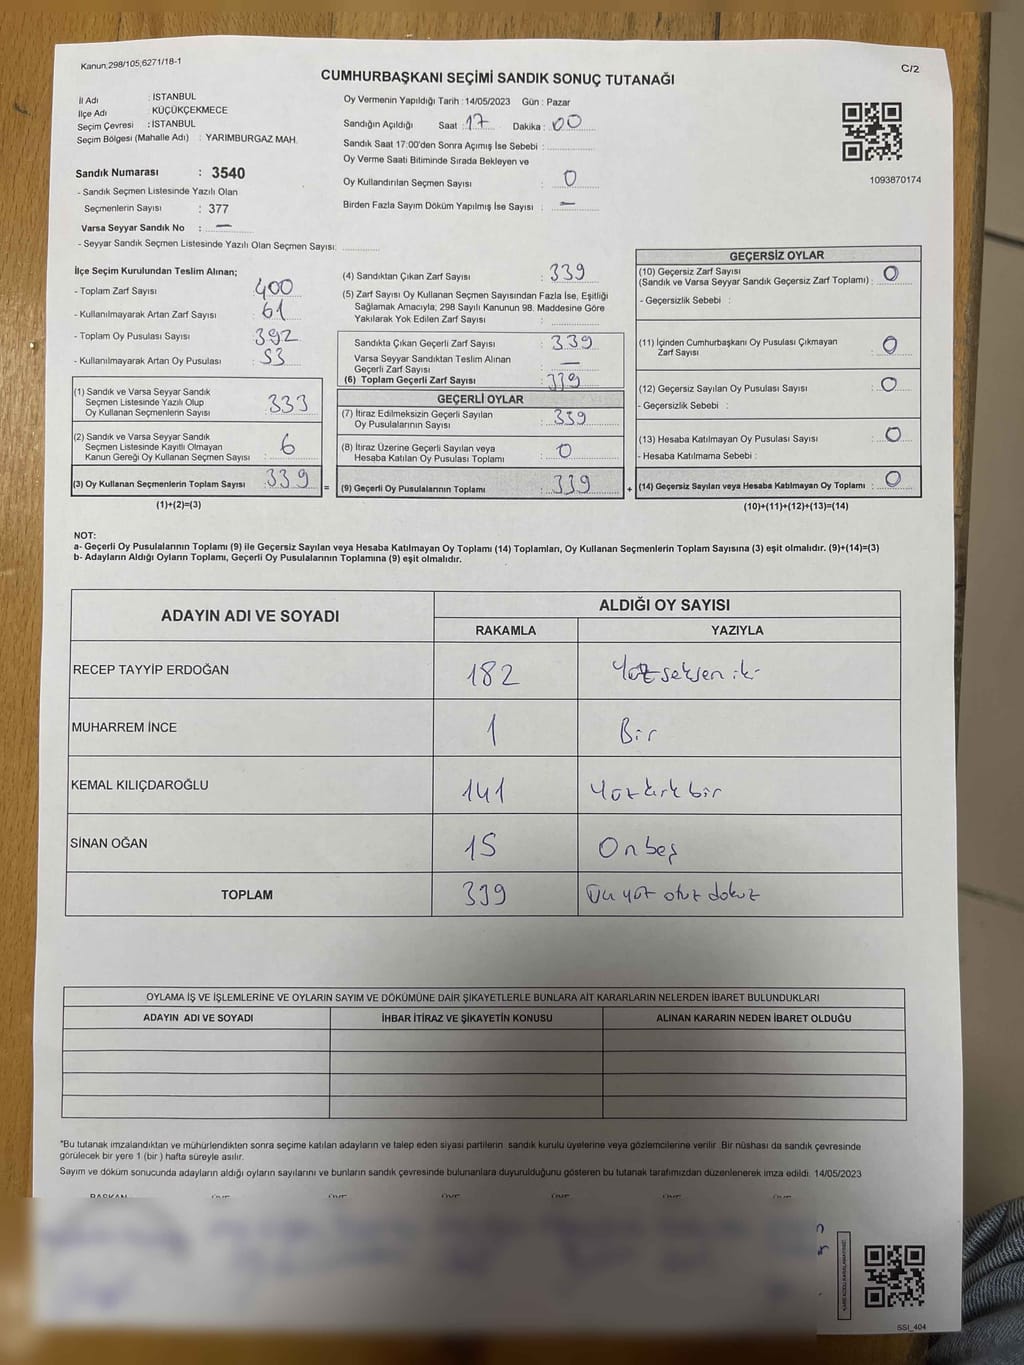 Kanun,298/105;6271/18-1
C/2
CUMHURBAŞKANI SEÇİMİ SANDIK SONUÇ TUTANAĞI
İl Adı : İSTANBUL
İlçe Adı : KÜÇÜKÇEKMECE
Seçim Çevresi : İSTANBUL
Seçim Bölgesi (Mahalle Adı) : YARIMBURGAZ MAH.
Oy Vermenin Yapıldığı Tarih : 14/05/2023 Gün : Pazar
Sandığın Açıldığı Saat : 17 Dakika : 00
Sandık Saat 17:00'den Sonra Açımış İse Sebebi :
Oy Verme Saati Bitiminde Sırada Bekleyen ve
Oy Kullandırılan Seçmen Sayısı : 0
Birden Fazla Sayım Döküm Yapılmış İse Sayısı : —
1093870174
Sandık Numarası : 3540
- Sandık Seçmen Listesinde Yazılı Olan
Seçmenlerin Sayısı : 377
Varsa Seyyar Sandık No : —
- Seyyar Sandık Seçmen Listesinde Yazılı Olan Seçmen Sayısı:
İlçe Seçim Kurulundan Teslim Alınan;
- Toplam Zarf Sayısı : 400
- Kullanılmayarak Artan Zarf Sayısı : 61
- Toplam Oy Pusulası Sayısı : 392
- Kullanılmayarak Artan Oy Pusulası : 53
(1) Sandık ve Varsa Seyyar Sandık
Seçmen Listesinde Yazılı Olup
Oy Kullanan Seçmenlerin Sayısı : 333
(2) Sandık ve Varsa Seyyar Sandık
Seçmen Listesinde Kayıtlı Olmayan
Kanun Gereği Oy Kullanan Seçmen Sayısı : 6
(3) Oy Kullanan Seçmenlerin Toplam Sayısı : 339 =
(1)+(2)=(3)
(4) Sandıktan Çıkan Zarf Sayısı : 339
(5) Zarf Sayısı Oy Kullanan Seçmen Sayısından Fazla İse, Eşitliği
Sağlamak Amacıyla, 298 Sayılı Kanunun 98. Maddesine Göre
Yakılarak Yok Edilen Zarf Sayısı :
Sandıkta Çıkan Geçerli Zarf Sayısı : 339
Varsa Seyyar Sandıktan Teslim Alınan
Geçerli Zarf Sayısı : —
(6) Toplam Geçerli Zarf Sayısı : 339
GEÇERLİ OYLAR
(7) İtiraz Edilmeksizin Geçerli Sayılan
Oy Pusulalarının Sayısı : 339
(8) İtiraz Üzerine Geçerli Sayılan veya
Hesaba Katılan Oy Pusulası Toplamı : 0
(9) Geçerli Oy Pusulalarının Toplamı : 339 +
GEÇERSİZ OYLAR
(10) Geçersiz Zarf Sayısı
(Sandık ve Varsa Seyyar Sandık Geçersiz Zarf Toplamı) : 0
- Geçersizlik Sebebi :
(11) İçinden Cumhurbaşkanı Oy Pusulası Çıkmayan
Zarf Sayısı : 0
(12) Geçersiz Sayılan Oy Pusulası Sayısı : 0
- Geçersizlik Sebebi :
(13) Hesaba Katılmayan Oy Pusulası Sayısı : 0
- Hesaba Katılmama Sebebi :
(14) Geçersiz Sayılan veya Hesaba Katılmayan Oy Toplamı : 0
(10)+(11)+(12)+(13)=(14)
NOT:
a- Geçerli Oy Pusulalarının Toplamı (9) ile Geçersiz Sayılan veya Hesaba Katılmayan Oy Toplamı (14) Toplamları, Oy Kullanan Seçmenlerin Toplam Sayısına (3) eşit olmalıdır. (9)+(14)=(3)
b- Adayların Aldığı Oyların Toplamı, Geçerli Oy Pusulalarının Toplamına (9) eşit olmalıdır.
ADAYIN ADI VE SOYADI ALDIĞI OY SAYISI
RAKAMLA YAZIYLA
RECEP TAYYİP ERDOĞAN 182 Yüz seksen iki
MUHARREM İNCE 1 Bir
KEMAL KILIÇDAROĞLU 141 Yüz kırk bir
SİNAN OĞAN 15 Onbeş
TOPLAM 339 Üç yüz otuz dokuz
OYLAMA İŞ VE İŞLEMLERİNE VE OYLARIN SAYIM VE DÖKÜMÜNE DAİR ŞİKAYETLERLE BUNLARA AİT KARARLARIN NELERDEN İBARET BULUNDUKLARI
ADAYIN ADI VE SOYADI İHBAR İTİRAZ VE ŞİKAYETİN KONUSU ALINAN KARARIN NEDEN İBARET OLDUĞU
"Bu tutanak imzalandıktan ve mühürlendikten sonra seçime katılan adayların ve talep eden siyasi partilerin sandık kurulu üyelerine veya gözlemcilerine verilir. Bir nüshası da sandık çevresinde
görülecek bir yere 1 (bir ) hafta süreyle asılır.
Sayım ve döküm sonucunda adayların aldığı oyların sayılarını ve bunların sandık çevresinde bulunanlara duyurulduğunu gösteren bu tutanak tarafımızdan düzenlenerek imza edildi. 14/05/2023
BAŞKAN ÜYE ÜYE ÜYE ÜYE ÜYE ÜYE
SSİ_404